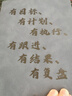 有目标、
有计划、
有执行、
有跟进、
有结果、
有复盘